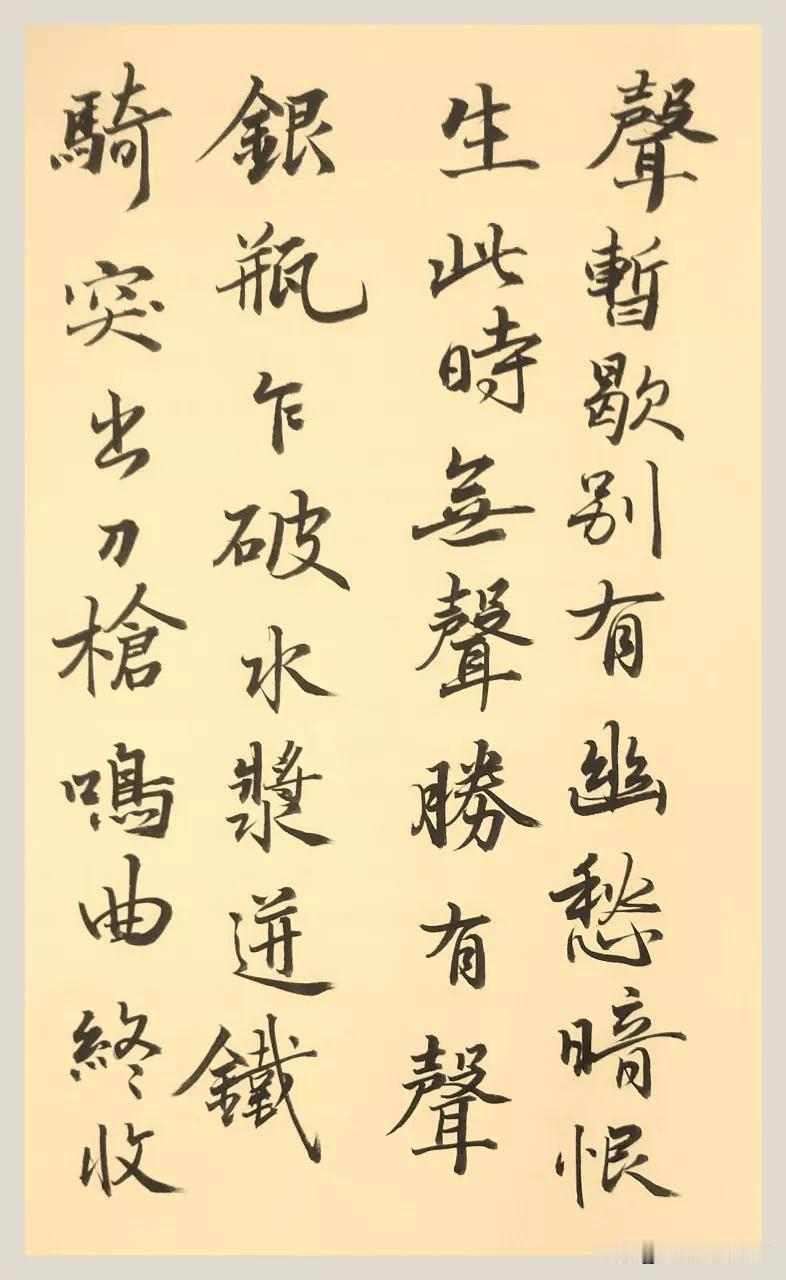 聲暫歇别有幽愁暗恨
生此時無聲勝有聲
銀瓶乍破水漿迸鐵
騎突出刀槍鳴曲終收